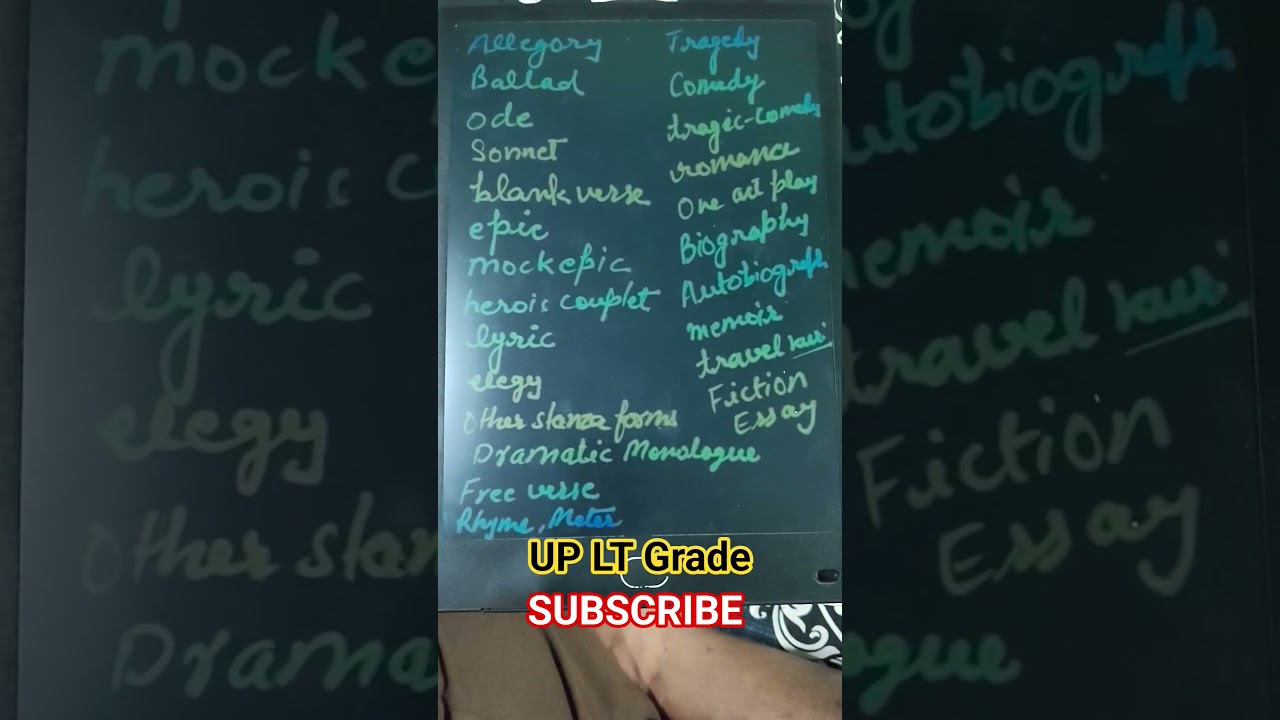 Allegory
Ballad
ode
Sonnet
blank verse
epic
mockepic
herois couplet
lyric
elegy
Other stanza forms
Dramatic Monologue
Free verse
Rhyme, Meter
Tragedy
Comedy
tragic-comedy
romance
One act play
Biography
Autobiograph
memoir
travel
Fiction
Essay
UP LT Grade
SUBSCRIBE